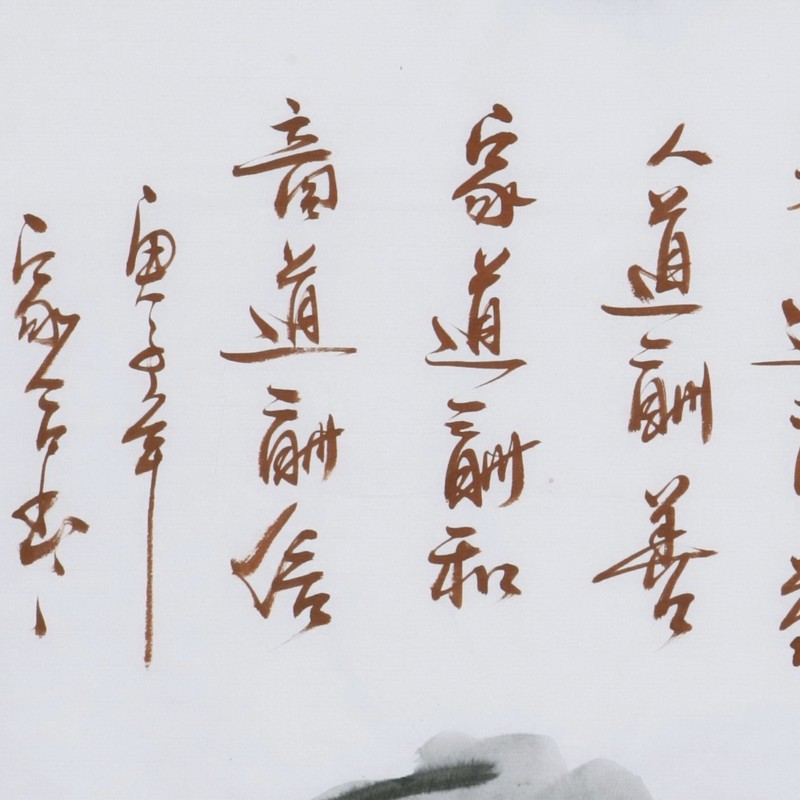 人道酬善
家道酬和
商道酬信
庚子年
家合书